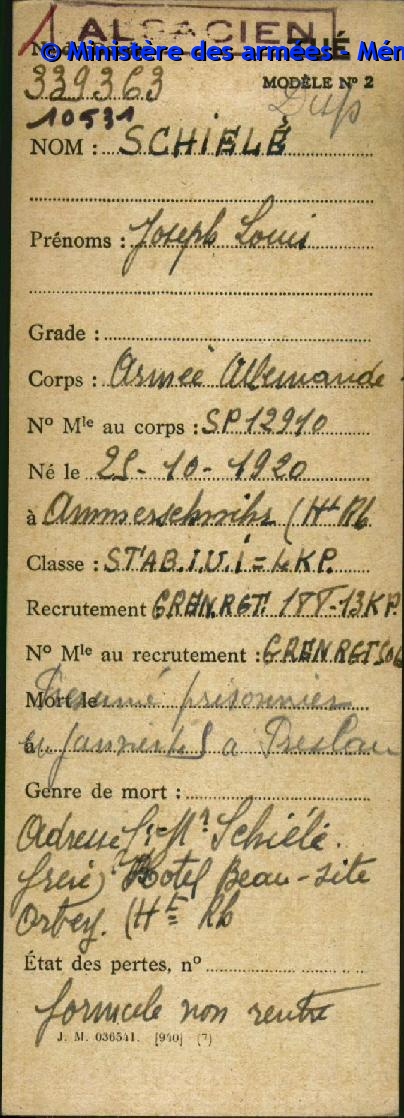 ALSACIEN
© Ministère des armées - Mém
339363
MODÈLE N° 2
10531
NOM : SCHIELÉ
Prénoms : Joseph Louis
Grade :
Corps : Armée Allemande
N° Mle au corps : SP 12910
Né le 25-10-1920
à Ammerschwihr (Ht Rh
Classe : STAB.I.U.i = 4 KP.
Recrutement GREN.RGT. 13 KP.
N° Mle au recrutement : GREN RGT
Mort le Présumé prisonnier
à en janvier 45 a Breslau
Genre de mort :
Adresse Schiélé.
frère) Hotel Beau-site
Orbey. (Ht Rh
État des pertes, n°
formule non rentré
J. M. 036541. [940] (7)